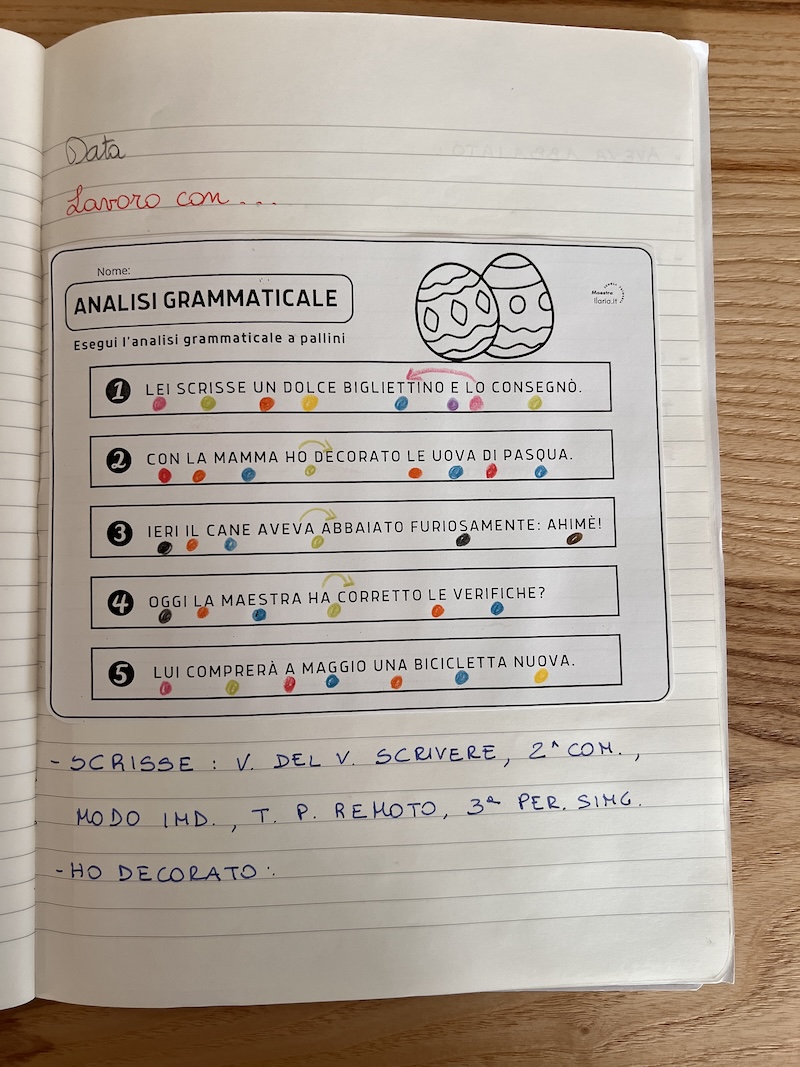 Data
Lavoro con...
Nome:
ANALISI GRAMMATICALE
Esegui l'analisi grammaticale a pallini
Maestra
Ilaria.it
1 LEI SCRISSE UN DOLCE BIGLIETTINO E LO CONSEGNÒ.
2 CON LA MAMMA HO DECORATO LE UOVA DI PASQUA.
3 IERI IL CANE AVEVA ABBAIATO FURIOSAMENTE: AHIMÈ!
4 OGGI LA MAESTRA HA CORRETTO LE VERIFICHE?
5 LUI COMPRERÀ A MAGGIO UNA BICICLETTA NUOVA.
- SCRISSE : V. DEL V. SCRIVERE, 2ᴬ CON. ,
MODO IND. , T. P. REMOTO, 3ª PER. SING.
- HO DECORATO :